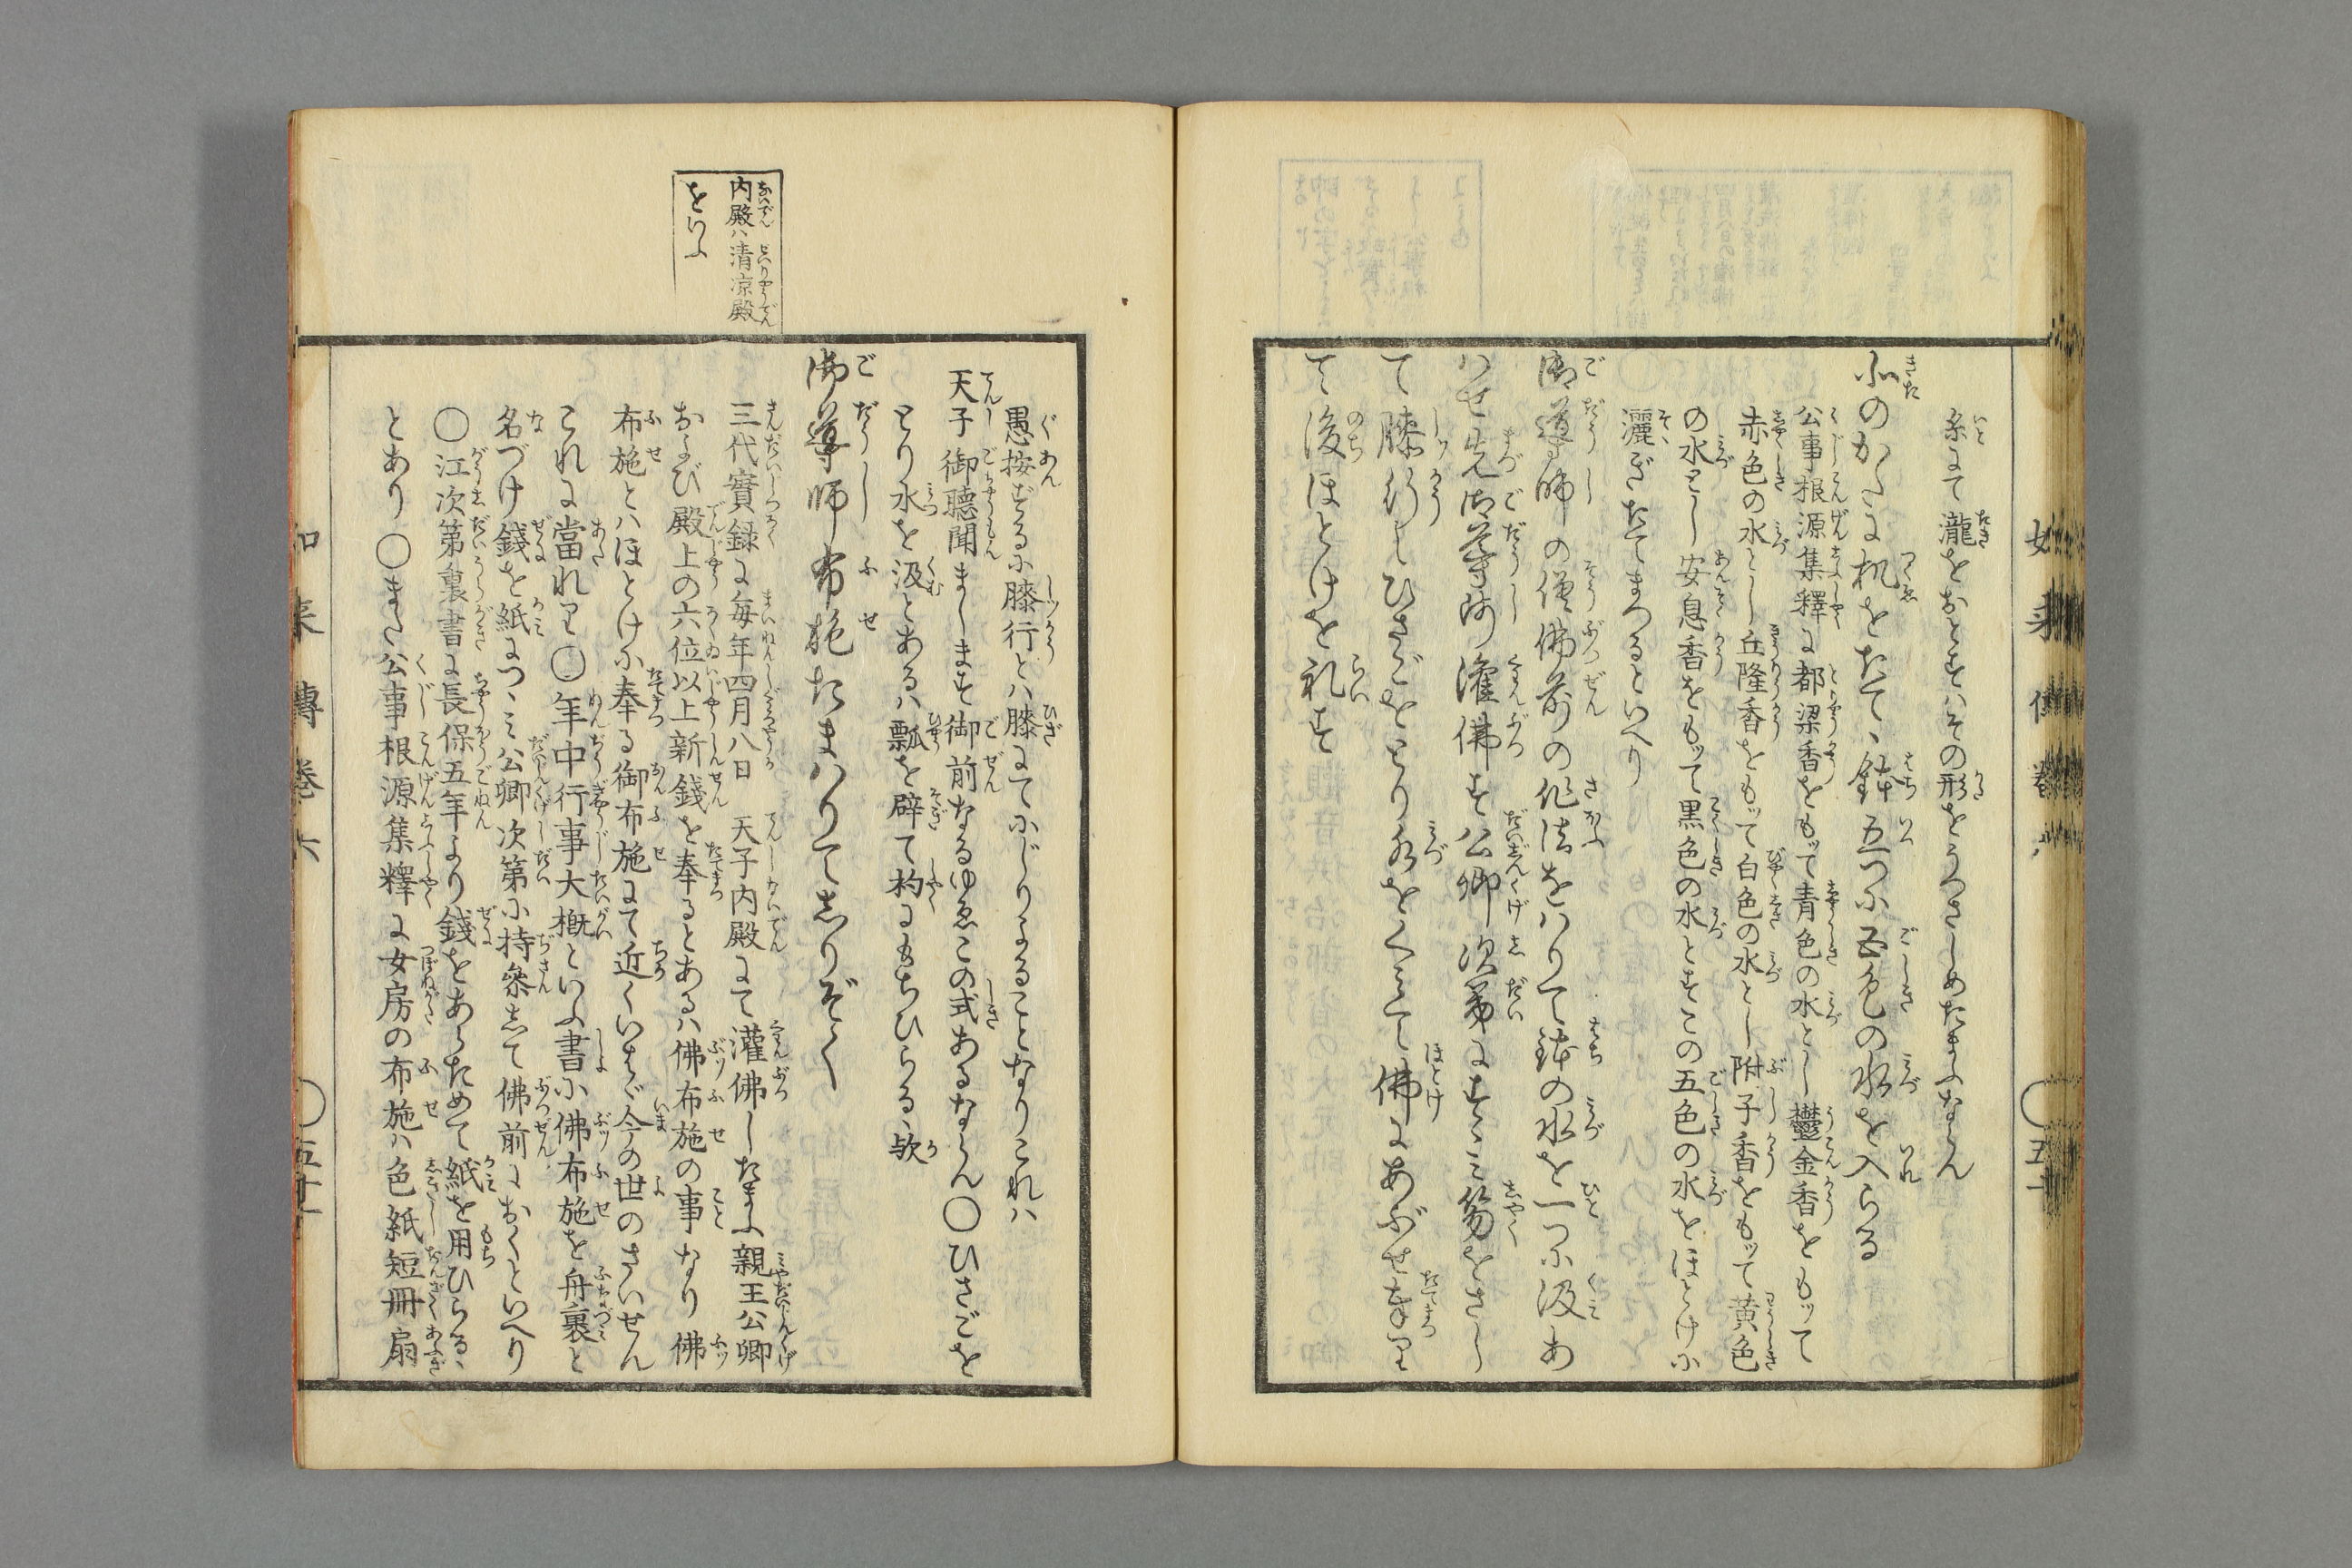 糸にて瀧をおとすハその形をうつさしめたまふならん
北のかたに机をたて、鉢五つに五色の水を入らる
公事根源集釋に都梁香をもって青色の水とし鬱金香をもッて
赤色の水とし丘隆香をもッて白色の水とし附子香をもッて黄色
の水とし安息香をもッて黒色の水とすこの五色の水をほとけに
灑ぎたてまつるといへり
御導師の僧佛前の作法をハりて鉢の水を一つに汲あ
ハせ先御導師灌佛す公卿次第にすゝミ笏をさし
て膝行してひさごをとり水をくミて佛にあぶせ奉り
て後ほとけを礼す
愚按ずるに膝行とハ膝にてにじりよることなりこれハ
天子御聴聞まします御前なるゆゑこの式あるならん〇ひさごを
とり水を汲とあるハ瓢を辟て杓にもちひらるゝ歟
御導師布施たまハりてしりぞく
三代實録に毎年四月八日　天子内殿にて灌佛したまふ親王公卿
および殿上の六位以上新錢を奉るとあるハ佛布施の事なり佛
布施とハほとけに奉る御布施にて近くいはゞ今の世のさいせん
これに當れり〇年中行事大概といふ書に佛布施を舟裹と
名づけ錢を紙につゝミ公卿次第に持參して佛前におくといへり
〇江次第裏書に長保五年より錢をあらためて紙を用ひらるゝ
とあり〇また公事根源集釋に女房の布施ハ色紙短冊扇
内殿ハ清凉殿
をいふ
如来傳巻六